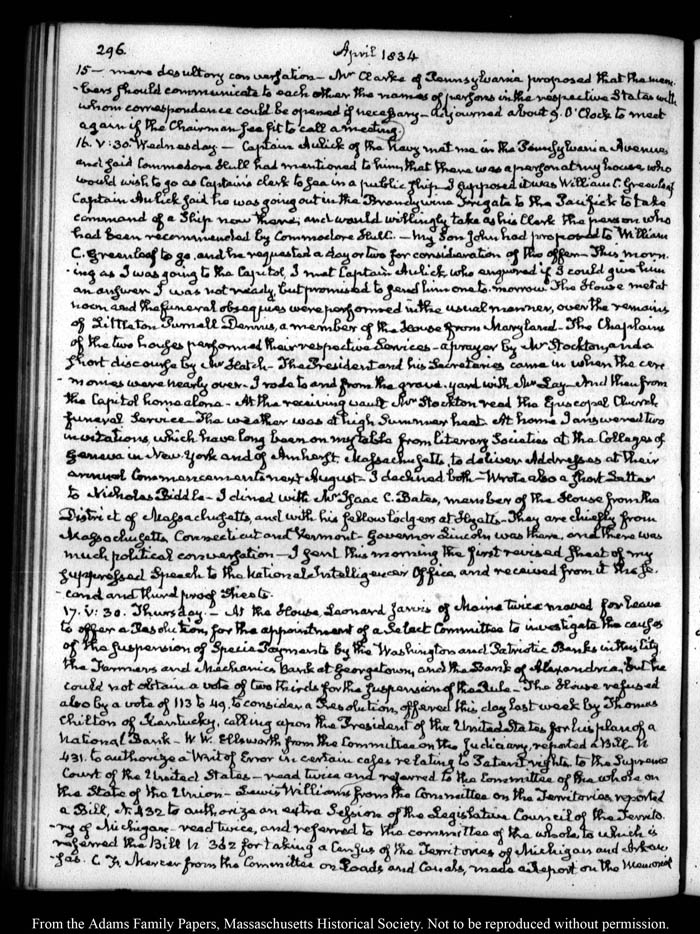 296.
April 1834
15 — mere desultory conversation — Mr. Clarke of Pennsylvania proposed that the mem-
-bers should communicate to each other the names of persons in the respective States with
whom correspondence could be opened if necessary — adjourned about 9. O'Clock to meet
again if the Chairman see fit to call a meeting.
16. V: 30. Wednesday — Captain Aulick of the Navy met me in the Pennsylvania Avenue
and said Commodore Hull had mentioned to him, that there was a person at my house who
would wish to go as Captain's clerk to sea in a public ship — I supposed it was William C. Greenleaf
Captain Aulick said he was going out in the Brandywine Frigate to the Pacifick to take
command of a Ship now there; and would willingly take as his Clerk the person who
had been recommended by Commodore Hull — my Son John had proposed to William
C. Greenleaf to go, and he requested a day or two for consideration of the offer — This morn-
-ing as I was going to the Capitol, I met Captain Aulick, who enquired if I could give him
an answer. I was not ready, but promised to send him one to-morrow. The House met at
noon and the funeral obsequies were performed in the usual manner, over the remains
of Littleton Purnell Dennis, a member of the House from Maryland — The Chaplains
of the two houses performed their respective Services — a prayer by Mr Stockton, and a
short discourse by Mr Hatch — The President and his Secretaries came in when the cere
-monies were nearly over. I rode to and from the grave-yard with Mr Lay — And then from
the Capitol home alone — At the receiving vault Mr Stockton read the Episcopal Church
funeral Service — The weather was at high Summer heat. At home I answered two
invitations, which have long been on my table from Literary Societies at the Colleges of
Geneva in New-York and of Amherst, Massachusetts, to deliver Addresses at their
annual Commencements next August — I declined both — Wrote also a short Letter
to Nicholas Biddle — I dined with Mr Isaac C. Bates, member of the House from the
District of Massachusetts, and with his fellow lodgers at Hyatts — They are chiefly from
Massachusetts, Connecticut and Vermont — Governor Lincoln was there, and there was
much political conversation — I sent this morning the first revised sheet of my
suppressed Speech to the National Intelligencer Office, and received from it the se-
-cond and third proof Sheets.
17. V: 30. Thursday — At the House, Leonard Jarvis of Maine twice moved for leave
to offer a Resolution, for the appointment of a Select Committee to investigate the causes
of the suspension of Specie Payments by the Washington and Patriotic Banks in this City
the Farmers and Mechanics Bank at Georgetown, and the Bank of Alexandria, but he
could not obtain a vote of two thirds for the suspension of the Rule — The House refused
also by a vote of 113 to 49. to consider a Resolution, offered this day last week by Thomas
Chilton of Kentucky, calling upon the President of the United States for his plan of a
National Bank — W. W. Ellsworth from the Committee on the Judiciary, reported a Bill N
431. to authorize a Writ of Error in certain cases relating to Patent rights, to the Supreme
Court of the United States — read twice and referred to the Committee of the whole on
the State of the Union — Lewis Williams from the Committee on the Territories reported
a Bill, N. 432 to authorize an extra Session of the Legislative Council of the Territo-
-ry of Michigan — read twice, and referred to the committee of the whole, to which is
referred the Bill N 362 for taking a Census of the Territories of Michigan and Arkan-
-sas. C. F. Mercer from the Committee on Roads and Canals, made a Report on the Memorial
From the Adams Family Papers, Massachusetts Historical Society. Not to be reproduced without permission.